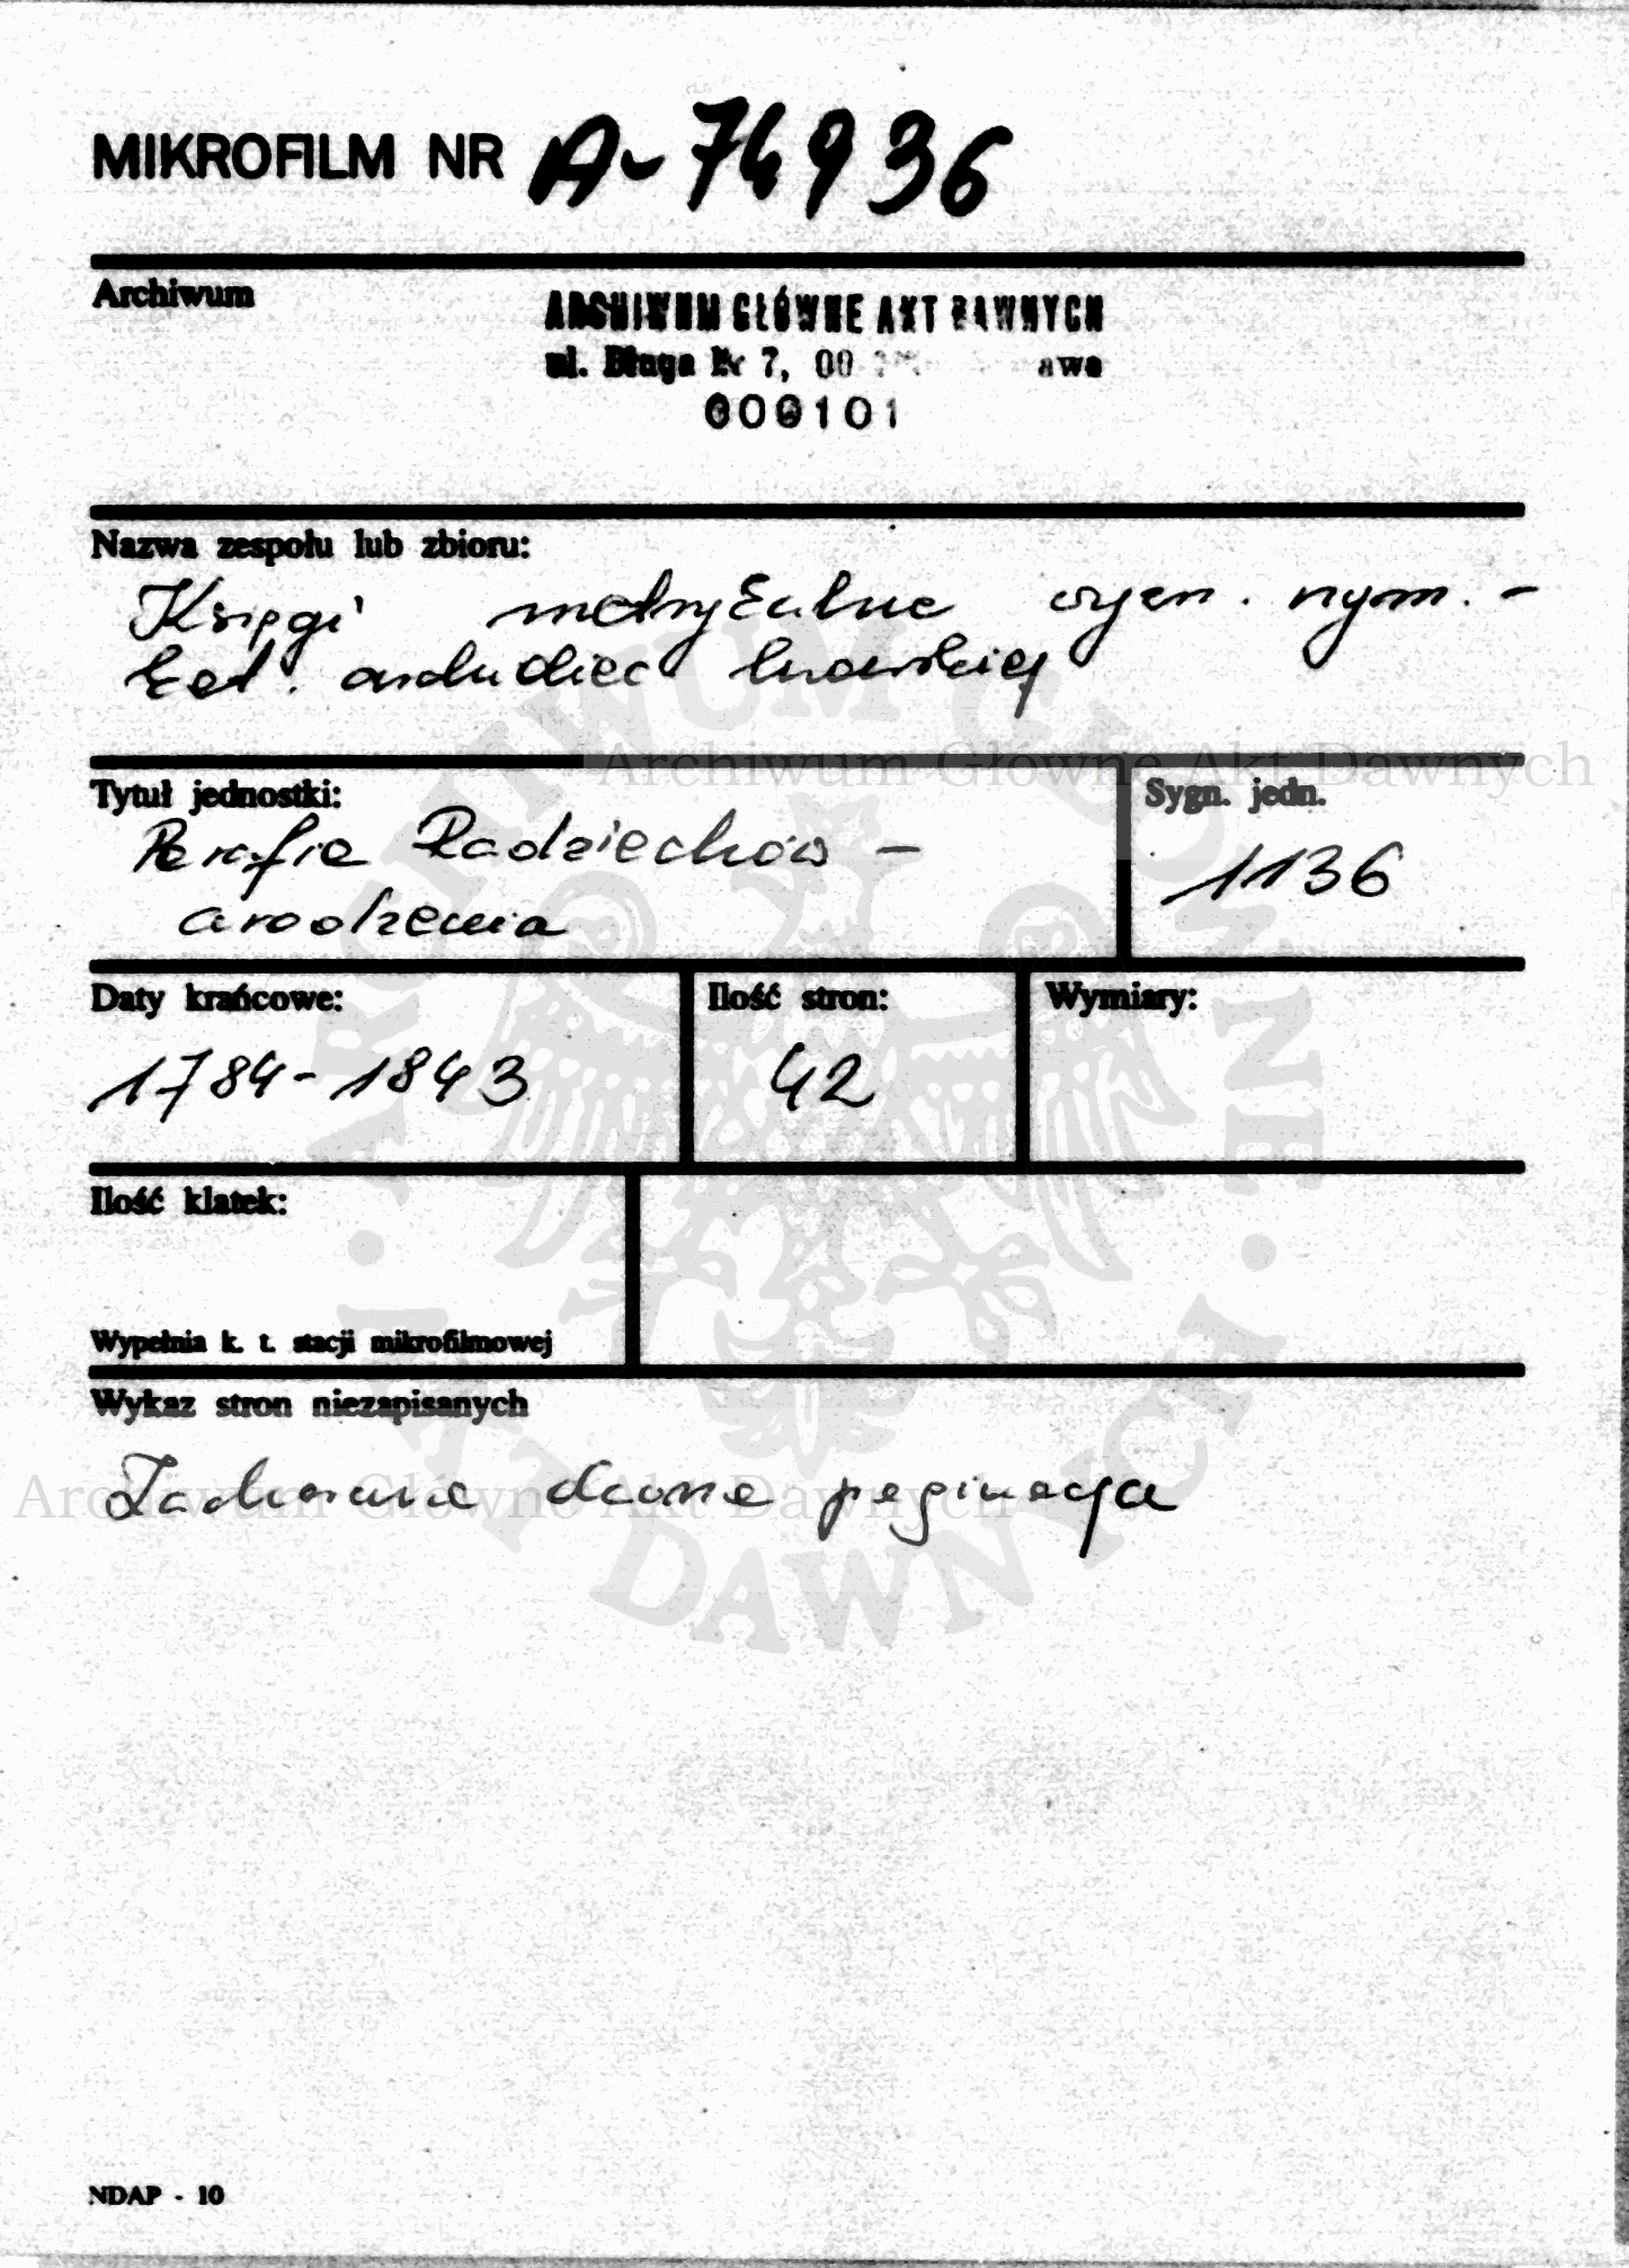 MIKROFILM NR A-74936
Archiwum
ARCHIWUM GŁÓWNE AKT DAWNYCH
ul. Długa Nr 7, 00
000101
Nazwa zespołu lub zbioru:
Księgi metrykalne wyzn. rzym. -
kat. archidiec lwowskiej
Archiwum Główne Akt Dawnych
Tytuł jednostki:
Sygn. jedn.
Parafia Radziechów -
urodzenia
1136
Daty krańcowe:
Ilość stron:
Wymiary:
1784-1843
42
Ilość klatek:
Wypełnia k. t. stacji mikrofilmowej
Wykaz stron niezapisanych
Zachowane dawne paginacja
Archiwum Główne Akt Dawnych
ARCHIWUM GŁÓWNE
AKT DAWNYCH
NDAP - 10